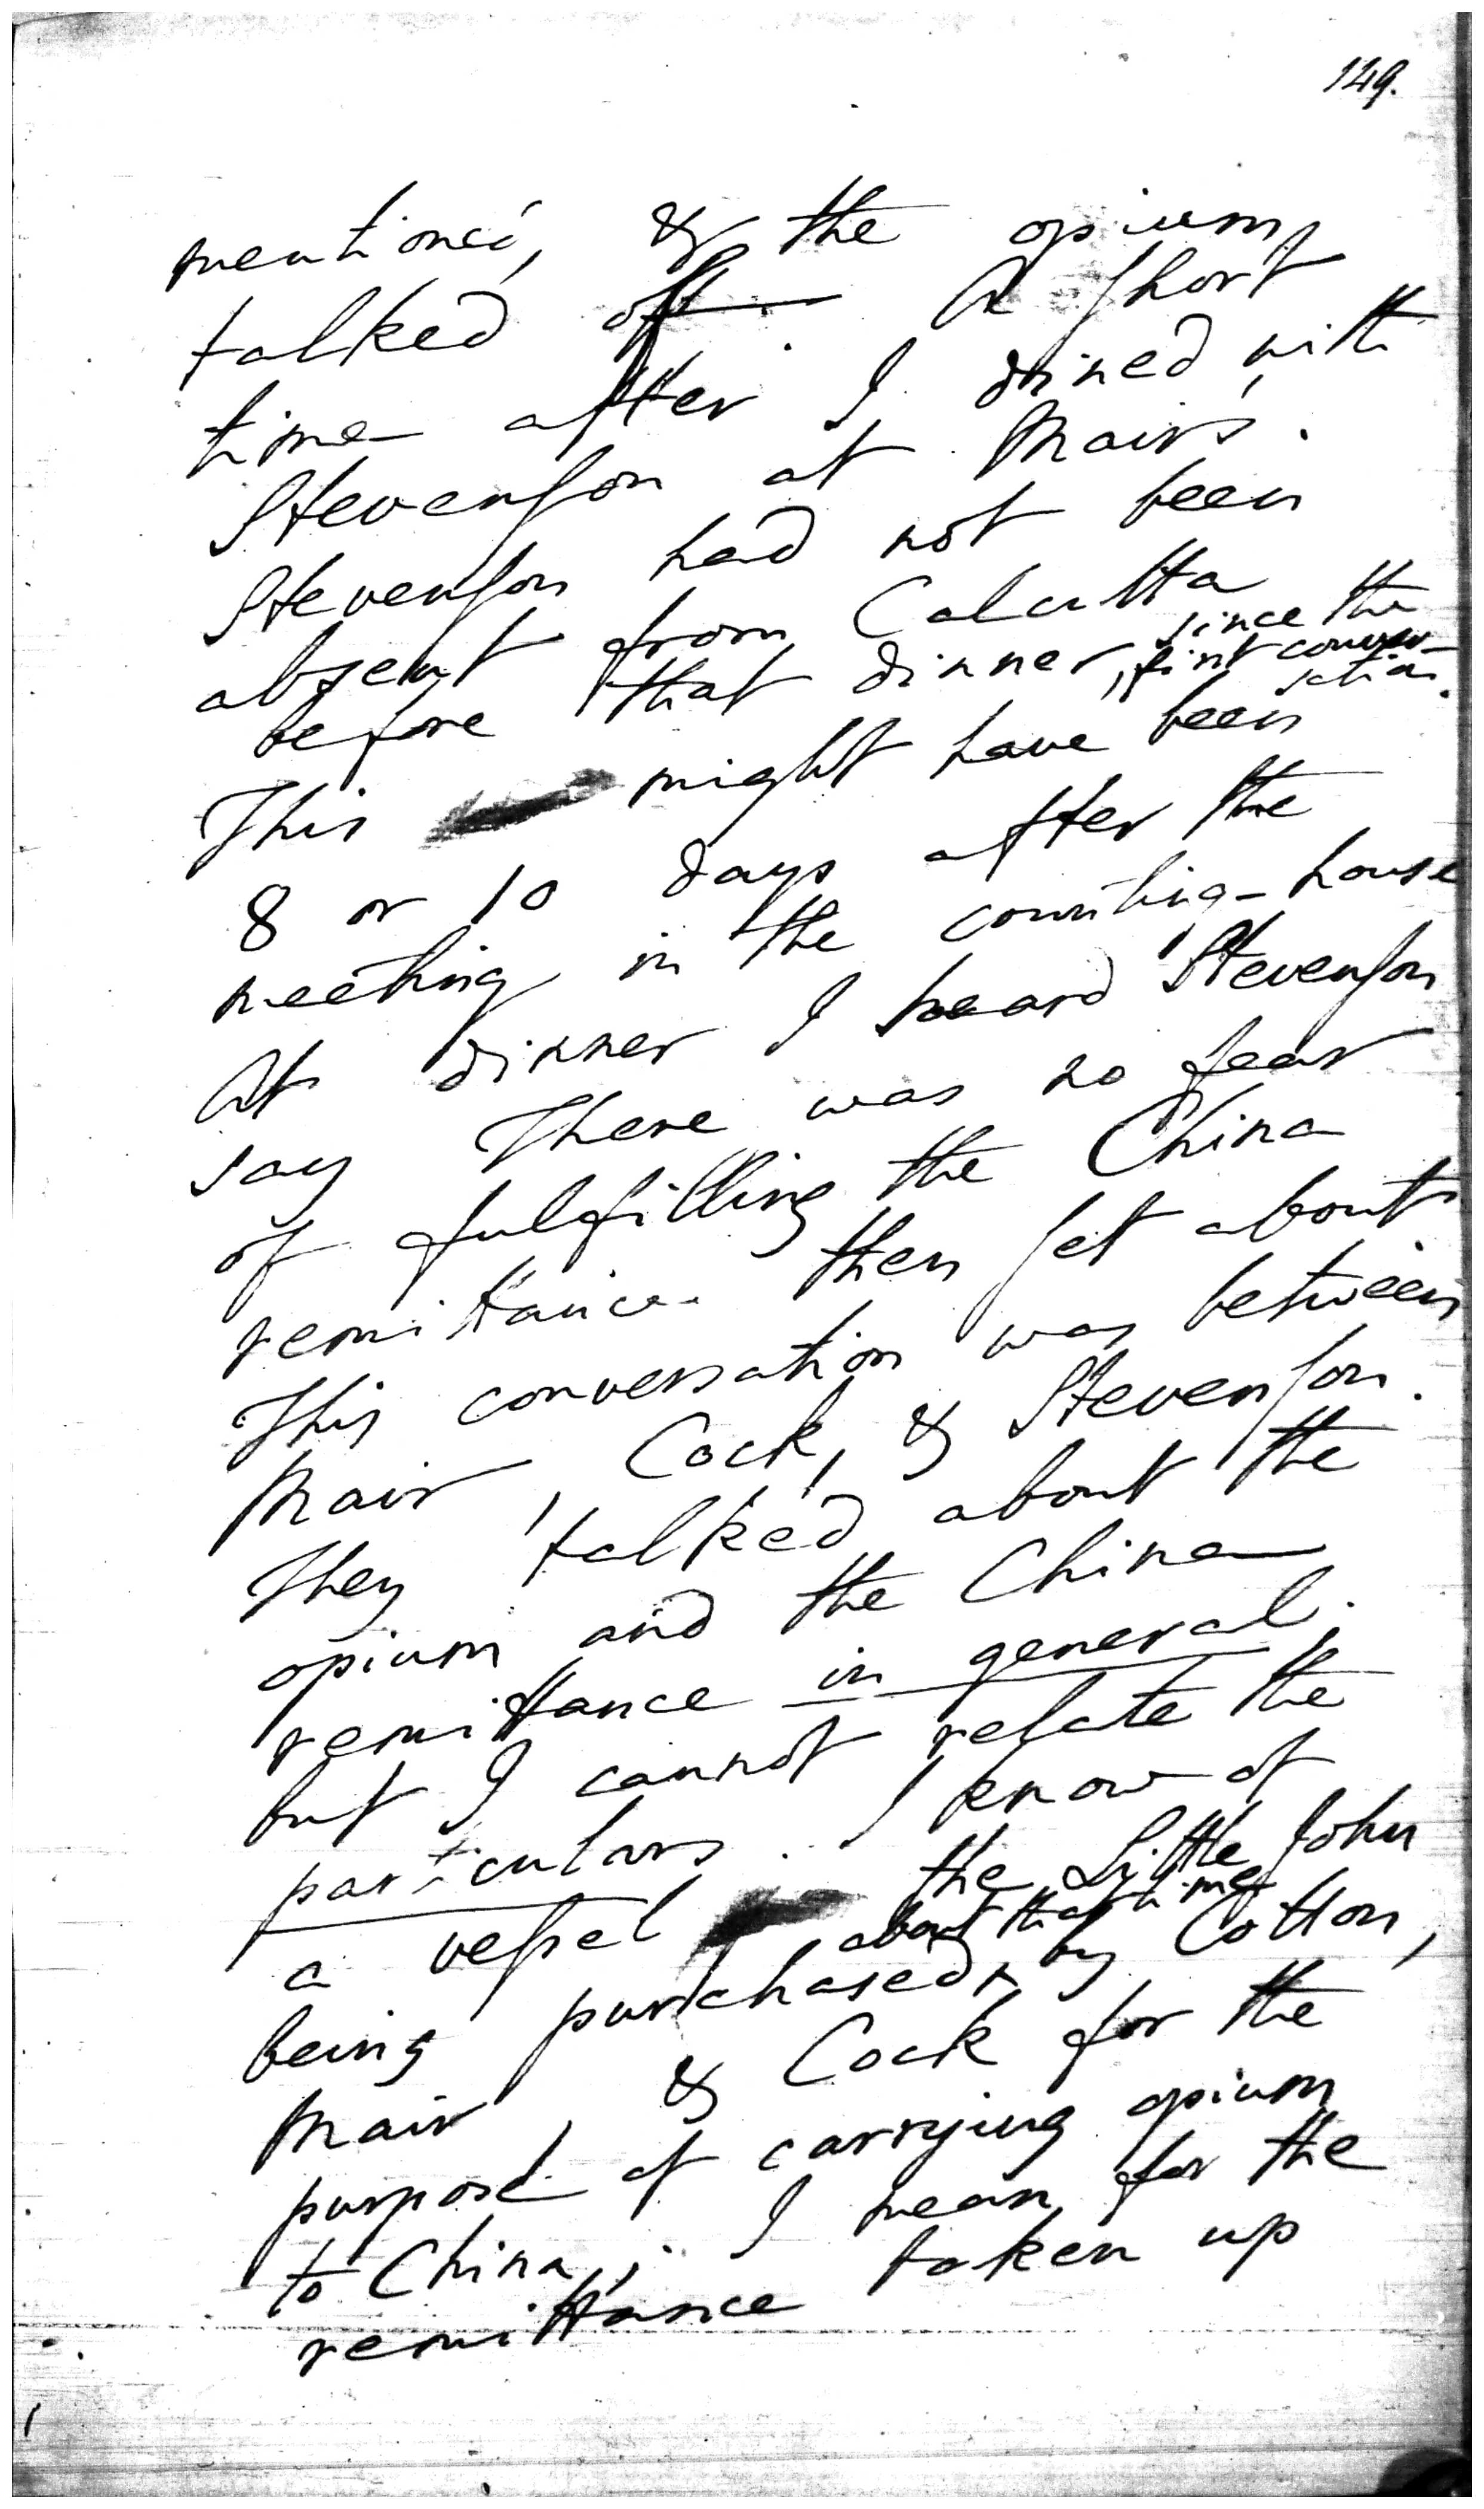 149.
mentioned, & the opium
talked of — A short
time after I dined with
Stevenson at Mair's.
Stevenson had not been
absent from Calcutta
before that dinner, since the first conver-sation.
This might have been
8 or 10 days after the
meeting in the counting-house
At dinner I heard Stevenson
say There was no fear
of fulfilling the China
remittance then set about
This conversation was between
Mair, Cock, & Stevenson.
They talked about the
opium and the China
remittance in general.
but I cannot relate the
particulars. I know of
a vessel the Little John
being purchased about that time by Cotton,
Mair, & Cock for the
purpose of carrying opium
to China; I mean, for the
remittance taken up